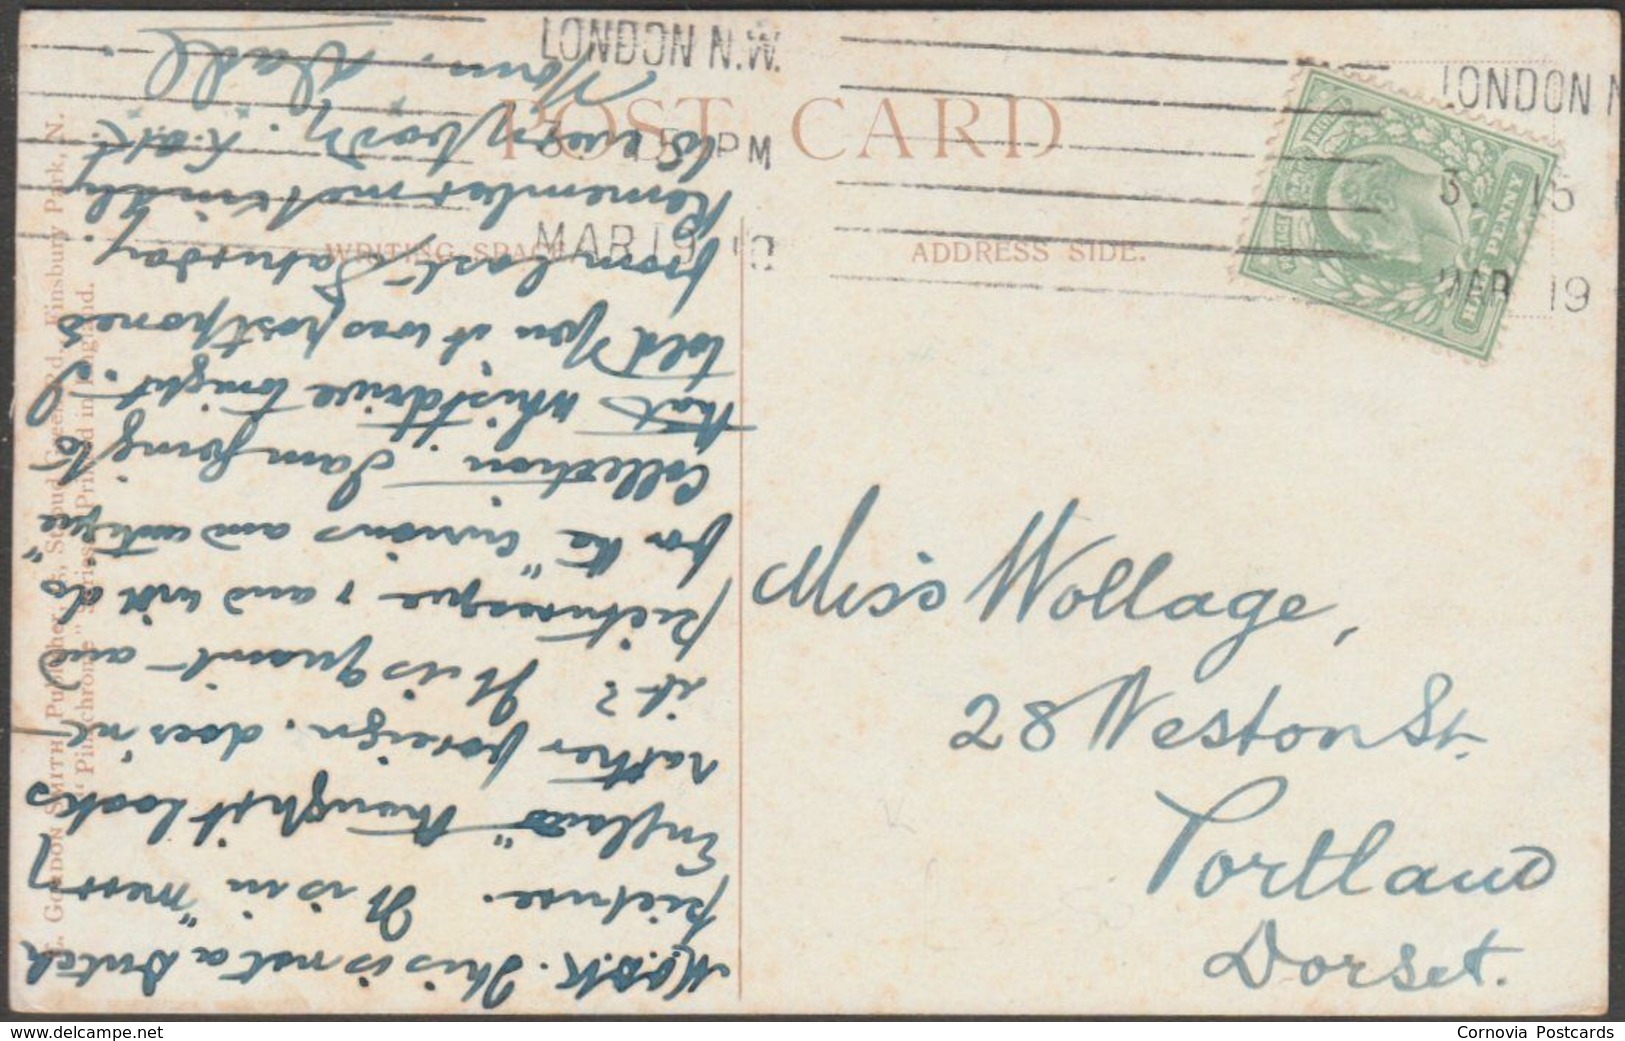 POST CARD
WRITING SPACE
ADDRESS SIDE.
LONDON N.W.
3. 15 PM
MAR 19 10
LONDON N
3. 15
MAR 19
HALF PENNY
Miss Wollage,
28 Weston St.
Portland
Dorset.
This is not a Dutch
picture. It is in "merry
England" though it looks
rather foreign. does'nt
it? It is quaint and
picturesque, and will do
for the "Curious and antique"
Collection. I am going to
that whistdrive tonight. I
told you it was postponed
from last Saturday.
Remember me kindly
to everybody.
Yours, Dad
L. GORDON SMITH, Publisher, 15, Stroud Green Rd., Finsbury Park, N.
"Pinachrome" Series. Printed in England.
Cornovia Postcards
www.delcampe.net